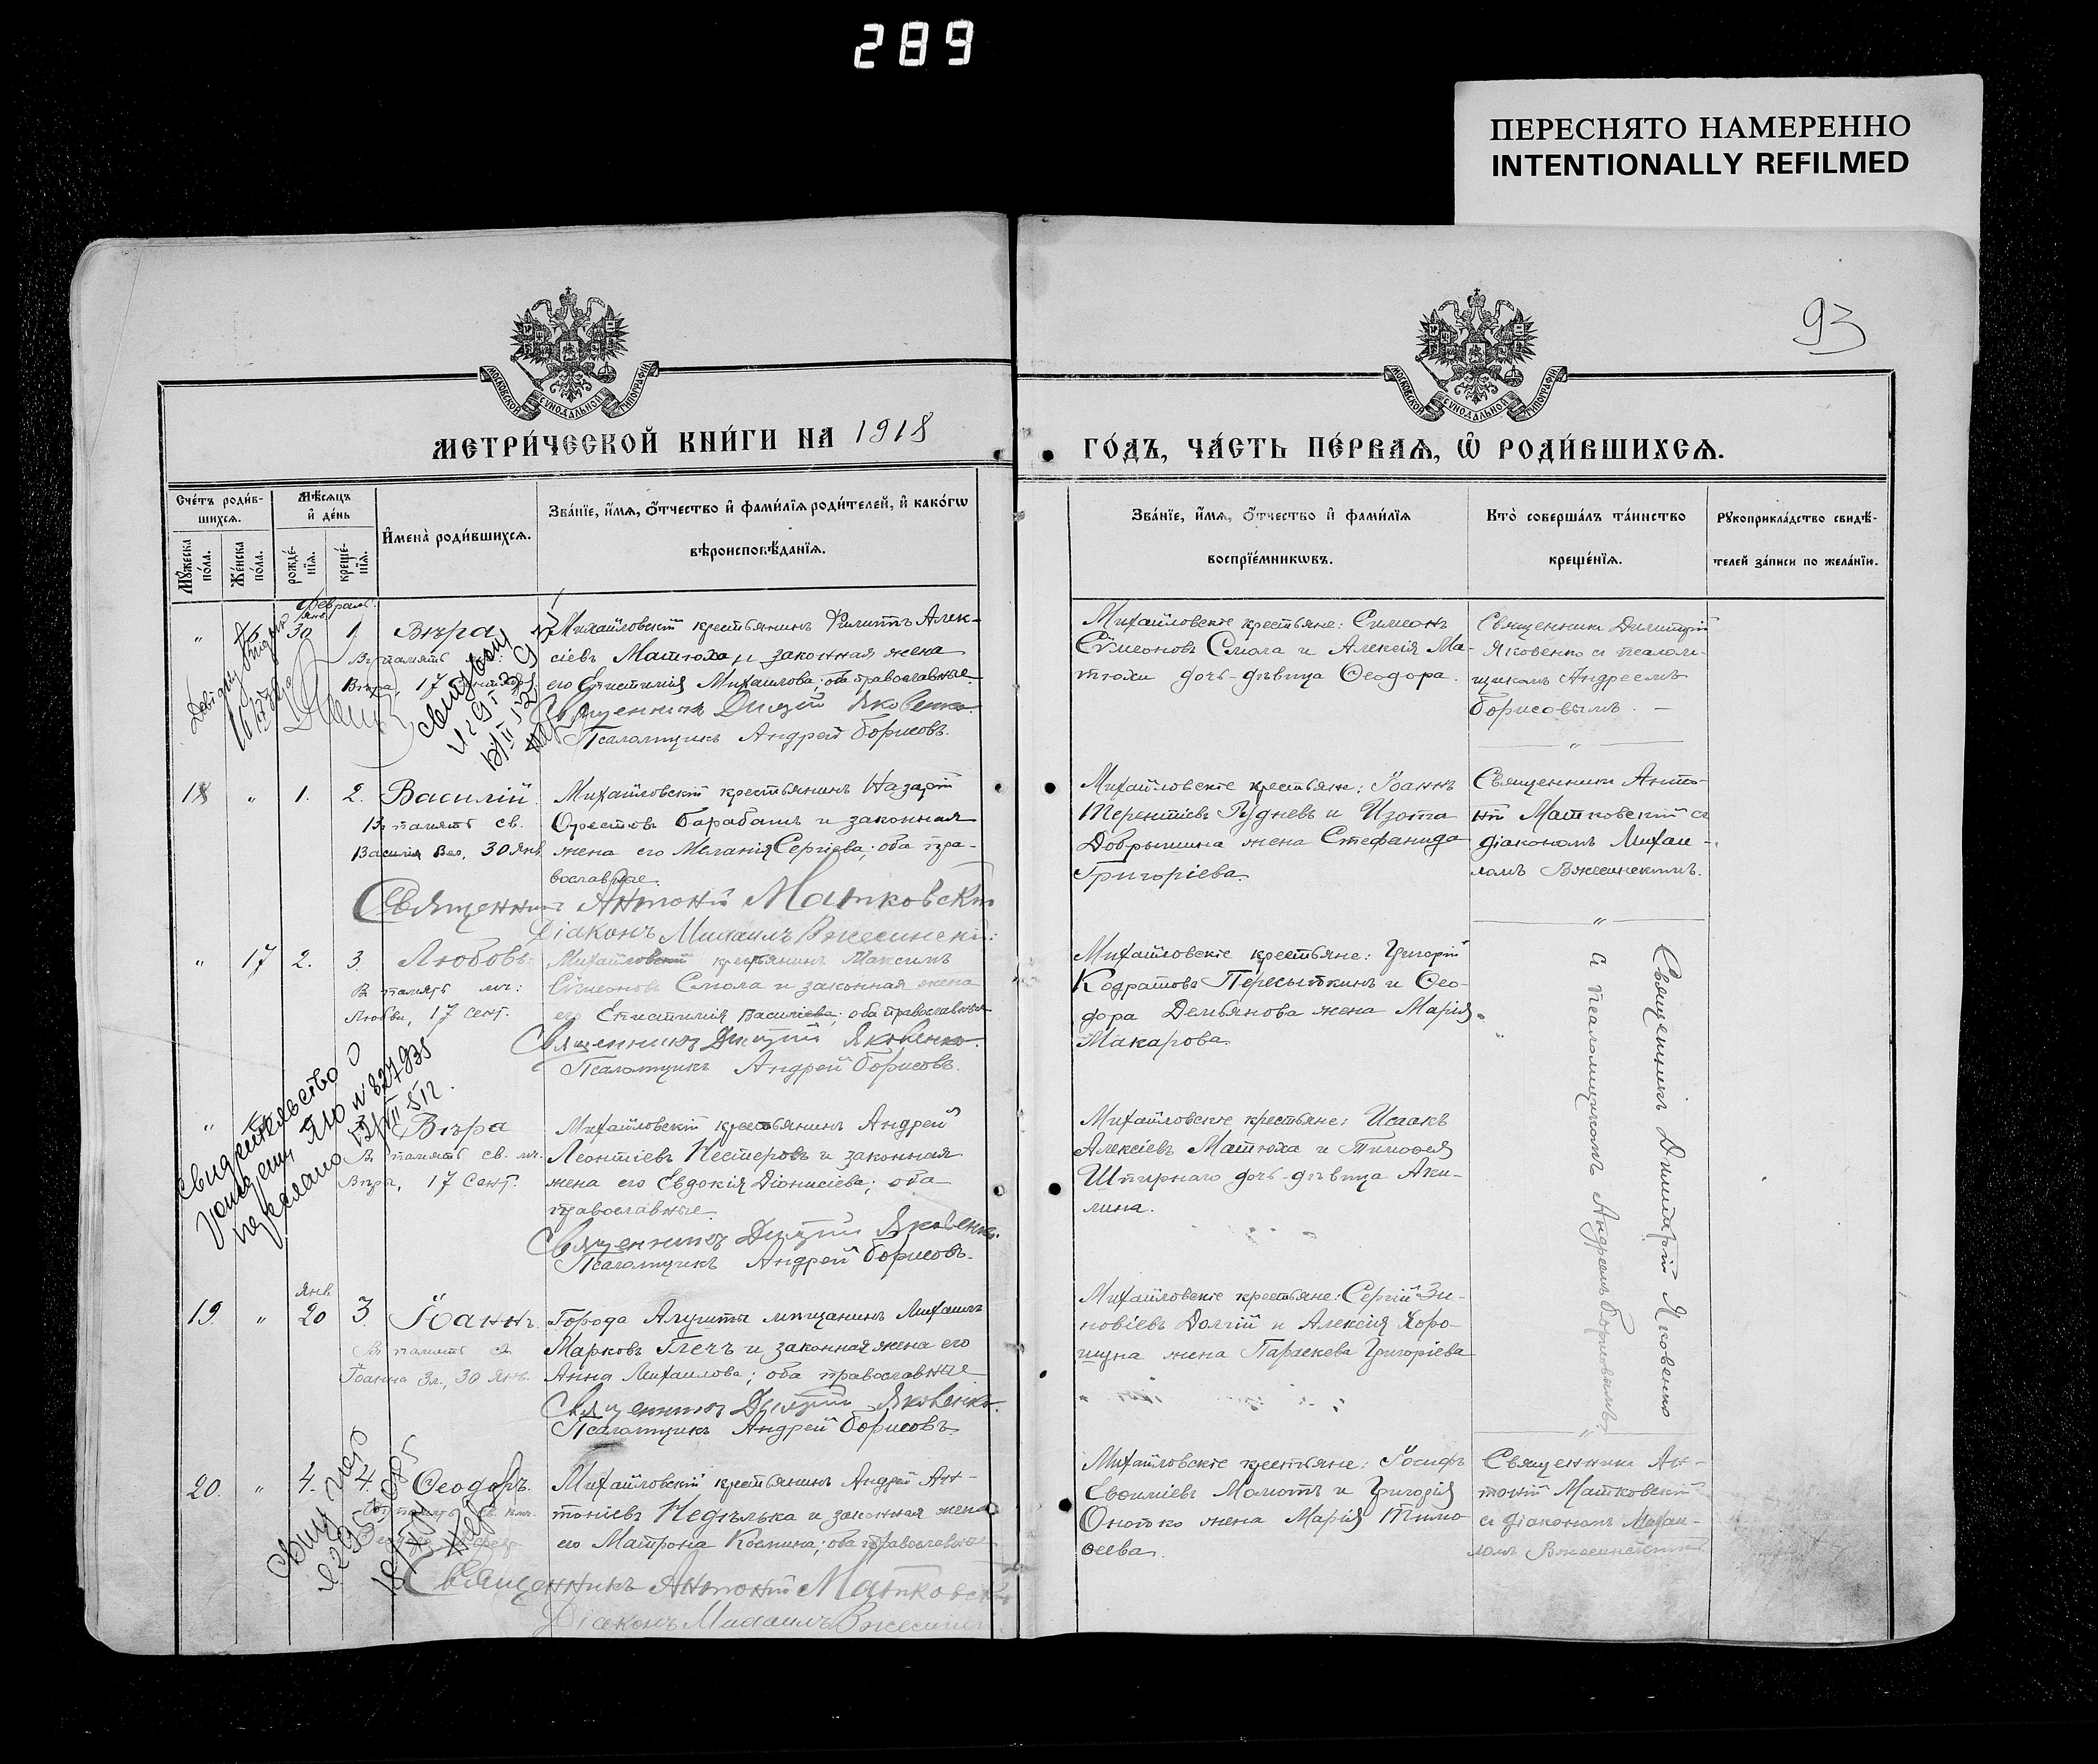 289
ПЕРЕСНЯТО НАМЕРЕННО
INTENTIONALLY REFILMED
93
МОСКОВСКОЙ СѴНОДАЛЬНОЙ ТИПОГРАФІИ
МОСКОВСКОЙ СѴНОДАЛЬНОЙ ТИПОГРАФІИ
МЕТРИ́ЧЕСКОЙ КНИ́ГИ НА 1918
ГО́ДЪ, ЧА́СТЬ ПЕ́РВАѦ, Ѡ РОДИ́ВШИХСѦ.
Сче́тъ роди́в-
шихсѧ.
Мꙋ́жеска по́ла.
Же́нска по́ла.
Мѣ́сѧцъ
и҆ де́нь
рожде́-
нїѧ.
креще́-
нїѧ.
И҆мена̀ роди́вшихсѧ.
Зва́нїе, и҆́мѧ, ѻ҆́тчество и҆ фами́лїѧ роди́телей, и҆ како́гѡ
вѣроисповѣ́данїѧ.
Зва́нїе, и҆́мѧ, ѻ҆́тчество и҆ фами́лїѧ
воспрїе́мникѡвъ.
Кто̀ соверша́лъ та́инство
креще́нїѧ.
Рꙋкоприкла́дство свидѣ́-
телей за́писи по жела́нїю.
Февраль.
Янв.
" 16 30 1 Вѣра
Въ память мч:
Вѣра, 17 Сентября
Михайловскій крестьянинъ Филиппъ Алек-
сіевъ Матюха и законная жена
его Епистимія Михаилова; оба православные
Священникъ Димитрій Яковенко.
Псаломщикъ Андрей Борисовъ.
Михайловскіе крестьяне: Симеонъ
Сѵмеоновъ Смола и Алексія Ма-
тюхи дочь-дѣвица Ѳеодора.
Священникъ Димитрій
Яковенко съ псалом-
щикомъ Андреемъ
Борисовымъ. —
18 " 1. 2. Василій.
Въ память св.
Василія Вел., 30 Янв.
Михайловскій крестьянинъ Назарій
Орестовъ Барабашъ и законная
жена его Меланія Сергіева; оба пра-
вославные.
Священникъ Антоній Матковскій
Діаконъ Михаилъ Вжесинскій:
Михайловскіе крестьяне: Іоаннъ
Терентіевъ Рудневъ и Изота
Добрынина жена Стефанида
Григоріева.
Священникъ Анто-
ній Матковскій съ
діакономъ Михаи-
ломъ Вжесинскимъ.
" 17 2. 3. Любовь
Въ память мч:
Любви, 17 Сент.
Михайловскій крестьянинъ Максимъ
Сѵмеоновъ Смола и законная жена
его Епистимія Василіева; оба православные
Священникъ Димитрій Яковенко.
Псаломщикъ Андрей Борисовъ.
Михайловскіе крестьяне: Григорій
Кодратовъ Пересыпкинъ и Ѳео-
дора Демьянова жена Марія
Макарова.
Священникъ Димитрій Яковенко
съ псаломщикомъ Андреемъ Борисовымъ.
Свидетельство о
" Вѣра
Въ память св. мч.
Вѣра, 17 Сент.
Михайловскій крестьянинъ Андрей
Леонтіевъ Нестеровъ и законная
жена его Евдокія Діонисіева; оба
православные.
Священникъ Димитрій Яковенко.
Псаломщикъ Андрей Борисовъ.
Михайловскіе крестьяне: Исаакъ
Алексіевъ Матюха и Тимоѳея
Штирнаго дочь-дѣвица Аки-
лина.
Янв.
19. " 20 3. Іоаннъ.
Въ память св.
Іоанна Зл., 30 Янв.
Города Алушты мѣщанинъ Михаилъ
Марковъ Глечъ и законная жена его
Анна Михаилова; оба православные
Священникъ Димитрій Яковенко.
Псаломщикъ Андрей Борисовъ
Михайловскіе крестьяне: Сергій Зи-
новіевъ Долгій и Алексія Хоро-
шуна жена Параскева Григоріева
20. " 4. 4. Ѳеодоръ.
Михайловскій крестьянинъ Андрей Ан-
тоніевъ Недѣлька и законная жена
его Матрона Косьмина; оба православные
Священникъ Антоній Матковскій
Діаконъ Михаилъ Вжесинскій
Михайловскіе крестьяне: Іосифъ
Евѳиміевъ Мамотъ и Григорія
Онопко жена Марія Тимо-
ѳеева.
Священникъ Ан-
тоній Матковскій
съ діакономъ Михаи-
ломъ Вжесинскимъ